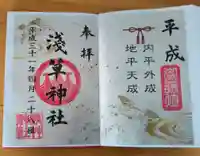 平成
内平外成
地平天成
奉拝
浅草神社
平成三十一年四月二十八日